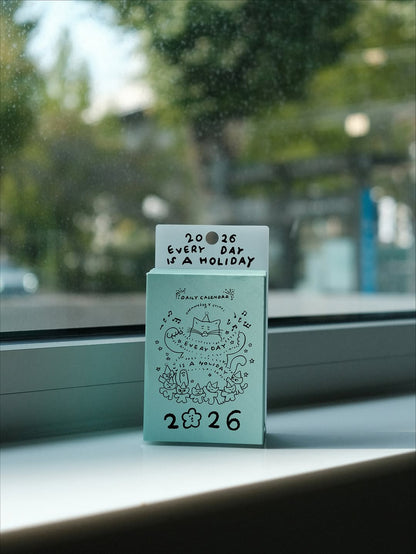 20 26
EVERY DAY
IS A HOLIDAY
DAILY CALENDAR
EVERY DAY
IS A HOLIDAY
2026